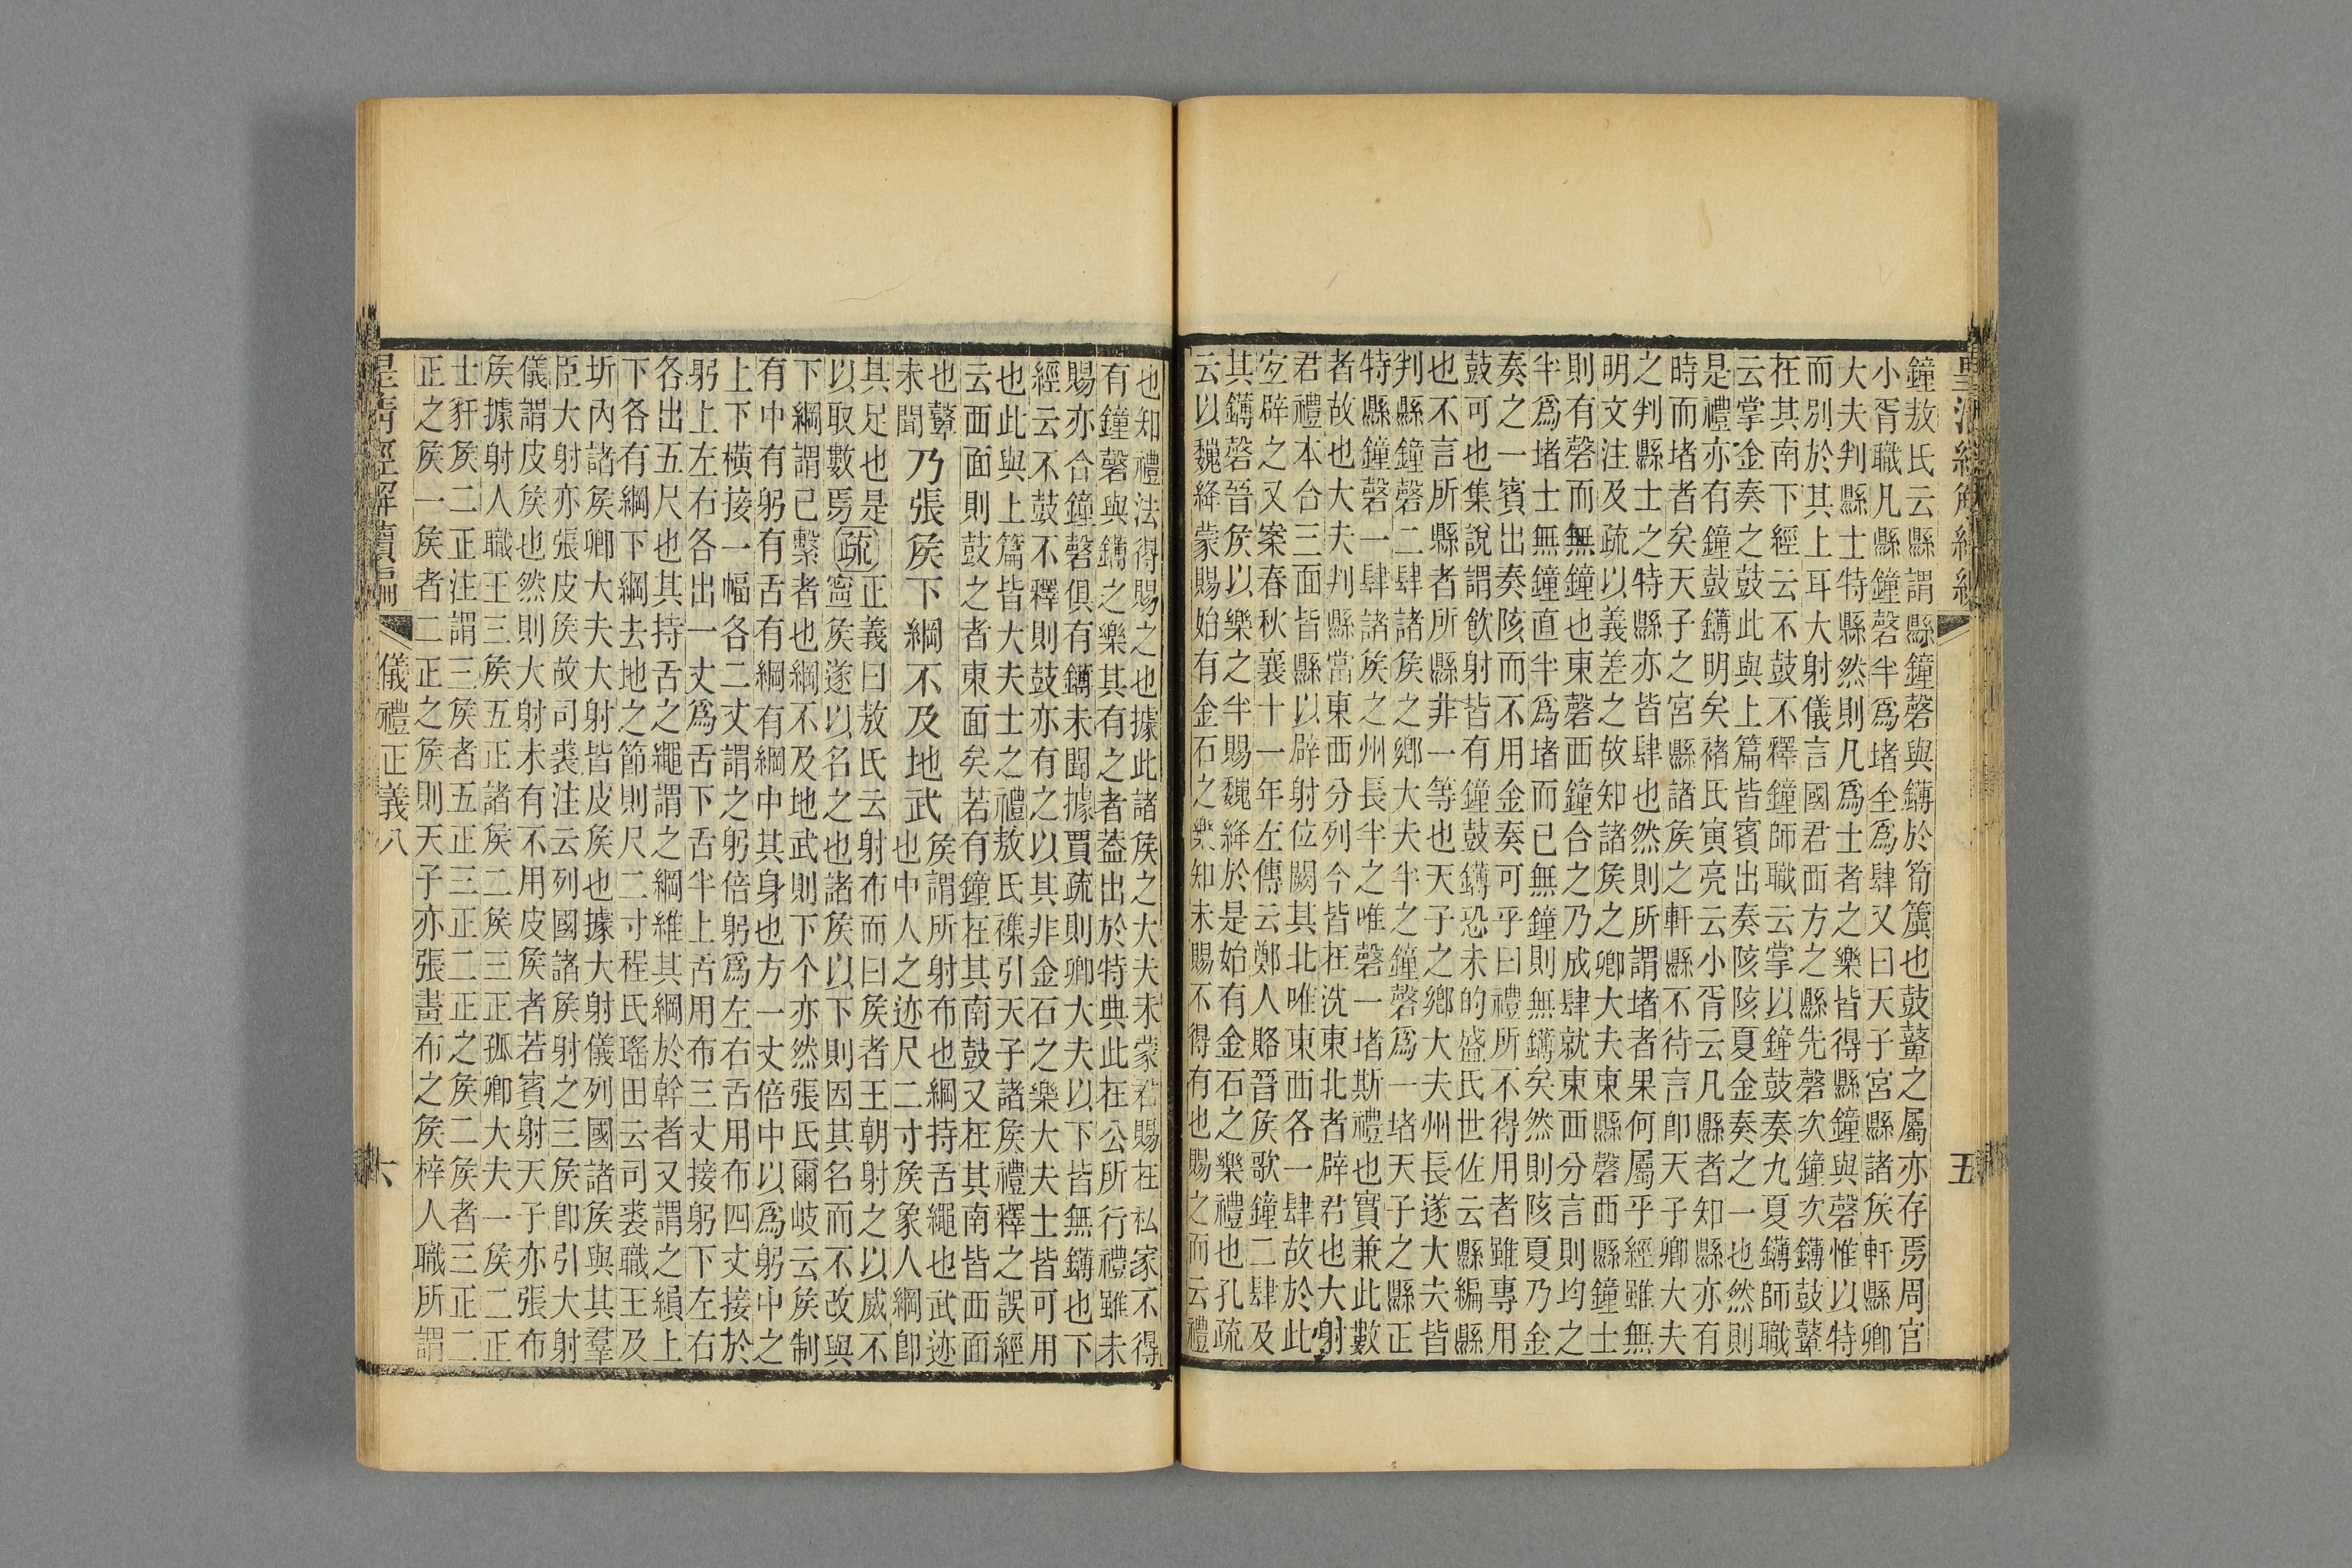 皇清經解續編
五
鐘敖氏云縣謂縣鐘磬與鎛於筍簴也鼓鼙之屬亦存焉周官
小胥職凡縣鐘磬半爲堵全爲肆又曰天子宮縣諸矦軒縣卿
大夫判縣士特縣然則凡爲士者之樂皆得縣鐘與磬惟以特
而別於其上耳大射儀言國君面方之縣先磬次鐘次鎛鼓鼙
在其南下經云不鼓不釋鐘師職云掌以鐘鼓奏九夏鎛師職
云掌金奏之鼓此與上篇皆賓出奏陔陔夏金奏之一也然則
是禮亦有鐘鼓鎛明矣褚氏寅亮云小胥云凡縣者知縣亦有
時而堵者矣天子之宮縣諸矦之軒縣不待言卽天子卿大夫
之判縣士之特縣亦皆肆也然則所謂堵者果何屬乎經雖無
明文注及疏以義差之故知諸矦之卿大夫東縣磬西縣鐘士
則有磬而無鐘也東磬西鐘合之乃成肆就東西分言則均之
半爲堵士無鐘直半爲堵而已無鐘則無鎛矣然則陔夏乃金
奏之一賓出奏陔而不用金奏可乎曰禮所不得用者雖專用
鼓可也集說謂飲射皆有鐘鼓鎛恐未的盛氏世佐云縣編縣
也不言所縣者所縣非一等也天子之鄉大夫州長遂大夫皆
判縣鐘磬二肆諸矦之鄉大夫半之鐘磬爲一堵天子之縣正
特縣鐘磬一肆諸矦之州長半之唯磬一堵斯禮也實兼此數
者故也大夫判縣當東西分列今皆在洗東北者辟君也大射
君禮本合三面皆縣以辟射位闕其北唯東西各一肆故於此
宐辟之又案春秋襄十一年左傳云鄭人賂晉矦歌鐘二肆及
其鎛磬晉矦以樂之半賜魏絳於是始有金石之樂禮也孔疏
云以魏絳蒙賜始有金石之樂知未賜不得有也賜之而云禮
也知禮法得賜之也據此諸矦之大夫未蒙君賜在私家不得
有鐘磬與鎛之樂其有之者蓋出於特典此在公所行禮雖未
賜亦合鐘磬俱有鎛未聞據賈疏則卿大夫以下皆無鎛也下
經云不鼓不釋則鼓亦有之以其非金石之樂大夫士皆可用
也此與上篇皆大夫士之禮敖氏襍引天子諸矦禮釋之誤經
云西面則鼓之者東面矣若有鐘在其南鼓又在其南皆西面
也鼙
未聞
乃張矦下綱不及地武
矦謂所射布也綱持舌繩也武迹
也中人之迹尺二寸矦象人綱卽
其足也是
以取數焉
疏
正義曰敖氏云射布而曰矦者王朝射之以威不
寧矦遂以名之也諸矦以下則因其名而不改與
下綱謂已繫者也綱不及地武則下个亦然張氏爾岐云矦制
有中有躬有舌有綱有綱中其身也方一丈倍中以爲躬中之
上下橫接一幅各二丈謂之躬倍躬爲左右舌用布四丈接於
躬上左右各出一丈爲舌下舌半上舌用布三丈接躬下左右
各出五尺也其持舌之繩謂之綱維其綱於幹者又謂之縜上
下各有綱下綱去地之節則尺二寸程氏瑤田云司裘職王及
圻內諸矦卿大夫大射皆皮矦也據大射儀列國諸矦與其羣
臣大射亦張皮矦故司裘注云列國諸矦射之三矦卽引大射
儀謂皮矦也然則大射未有不用皮矦者若賓射天子亦張布
矦據射人職王三矦五正諸矦二矦三正孤卿大夫一矦二正
士豻矦二正注謂三矦者五正三正二正之矦二矦者三正二
正之矦一矦者二正之矦則天子亦張畫布之矦梓人職所謂
皇清經解續編
儀禮正義八
六